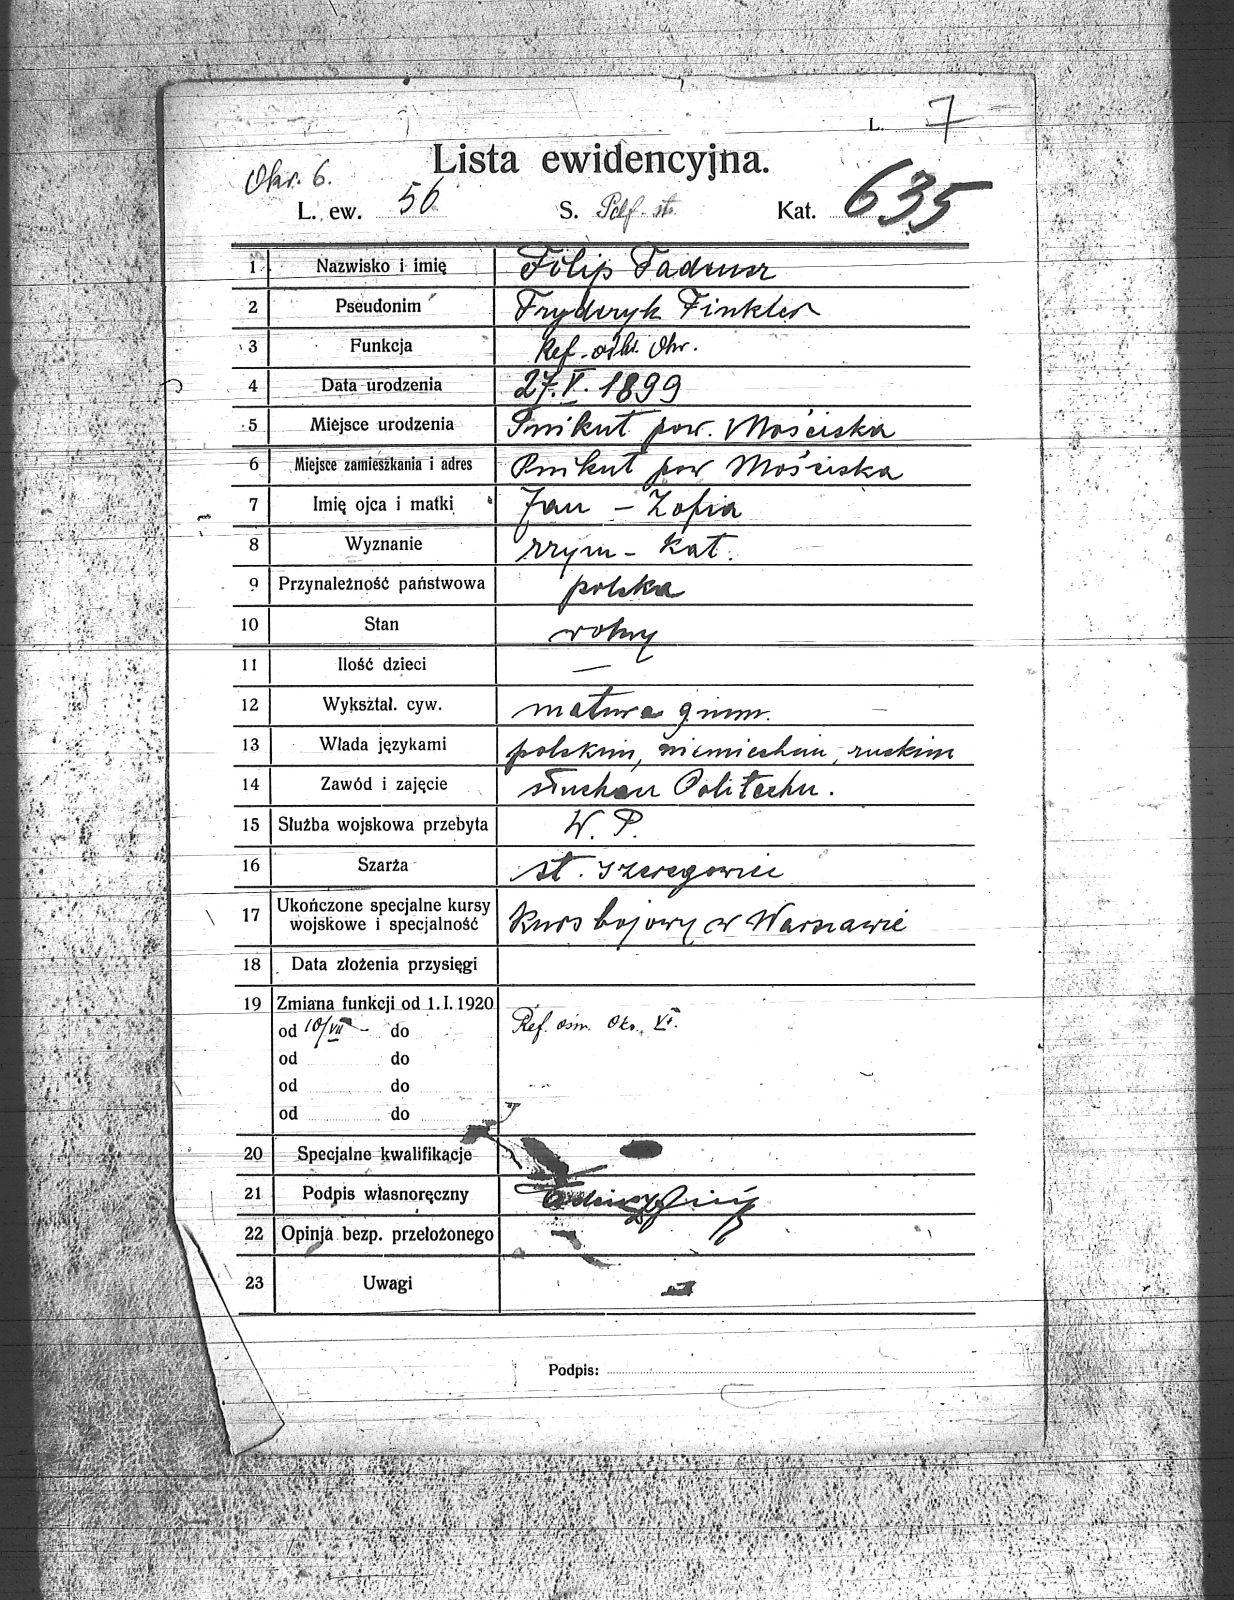 L. 7
Lista ewidencyjna.
Okr. 6.
L. ew. 56 S. Kat. 635
1 Nazwisko i imię Filip Tadeusz
2 Pseudonim Fryderyk Finkler
3 Funkcja Ref. Okr.
4 Data urodzenia 27.V.1899
5 Miejsce urodzenia Pnikut pow. Mościska
6 Miejsce zamieszkania i adres Pnikut pow Mościska
7 Imię ojca i matki Jan – Zofia
8 Wyznanie rzym – kat.
9 Przynależność państwowa polska
10 Stan wolny
11 Ilość dzieci —
12 Wykształ. cyw. matura gimn.
13 Włada językami polskim, niemieckim, ruskim
14 Zawód i zajęcie słuchacz Politechn.
15 Służba wojskowa przebyta W. P.
16 Szarża st. szeregowiec
17 Ukończone specjalne kursy
wojskowe i specjalność Kurs bojowy w Warszawie
18 Data złożenia przysięgi
19 Zmiana funkcji od 1. I. 1920
od 10/VII do Ref. ośw. Okr. VI.
od do
od do
od do
20 Specjalne kwalifikacje
21 Podpis własnoręczny
22 Opinja bezp. przełożonego
23 Uwagi
Podpis: